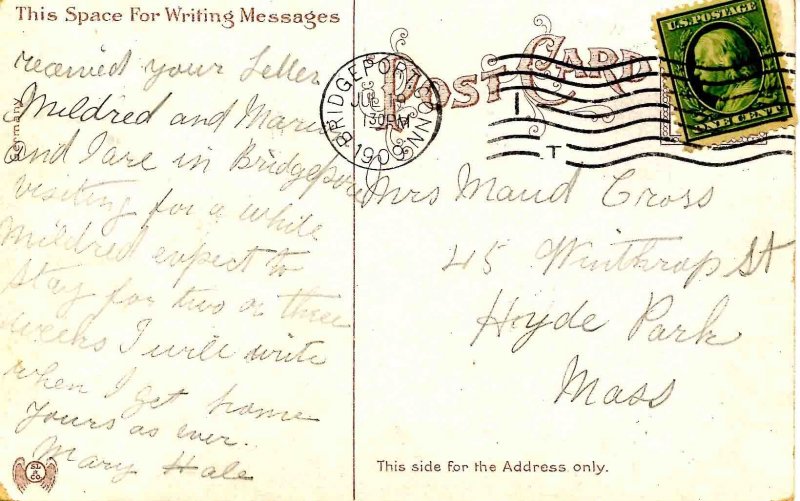 This Space For Writing Messages
received your Letter
Mildred and Maria
and I are in Bridgeport
visiting for a while
Mildred expect to
stay for two or three
weeks I will write
when I get home
Yours as ever..
Mary Hale
Germany
POST CARD
BRIDGEPORT CONN
130PM
1909
T
U.S. POSTAGE
ONE CENT
Mrs Maud Cross
45 Winthrop St
Hyde Park
Mass
This side for the Address only.